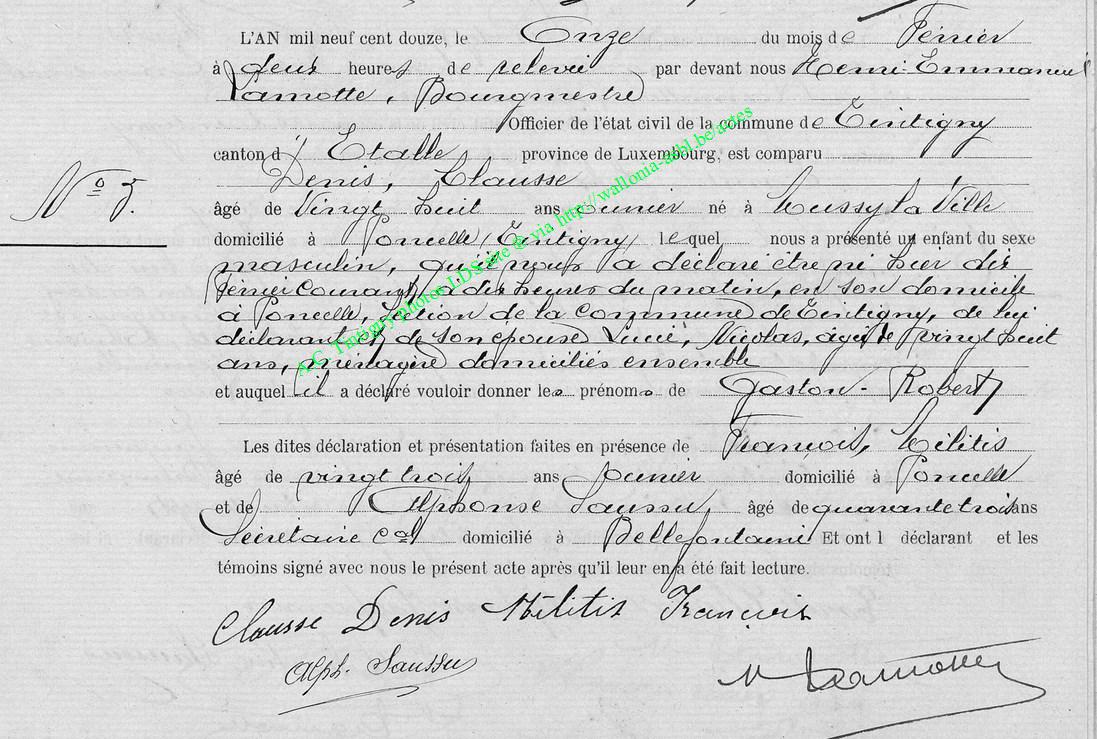 L'AN mil neuf cent douze, le Onze du mois de Février
à deux heures de relevée par devant nous Henri Emmanuel
Lamotte, Bourgmestre
Officier de l'état civil de la commune de Tintigny
canton d'Etalle, province de Luxembourg, est comparu
Denis, Clausse
N° 5.
âgé de Vingt huit ans né à Mussy la Ville
domicilié à Poncelle (Tintigny) lequel nous a présenté un enfant du sexe
masculin, qu'il nous a déclaré être né hier dix
février courant, à dix heures du matin, en son domicile
à Poncelle, section de la commune de Tintigny, de lui
déclarant et de son épouse Lucie, Nicolas, âgée de vingt huit
ans, ménagère domiciliés ensemble
et auquel il a déclaré vouloir donner les prénoms de Gaston - Robert
Les dites déclaration et présentation faites en présence de François, Mélitis
âgé de vingt trois ans domicilié à Poncelle
et de Alphonse Saussu, âgé de quarante trois ans
Secrétaire cal domicilié à Bellefontaine Et ont l déclarant et les
témoins signé avec nous le présent acte après qu'il leur en a été fait lecture.
Clausse Denis Mélitis François
Alph. Saussu
Lamotte
A.C. Tintigny photos LDS site @ via http://wallonia-asbl.be/actes